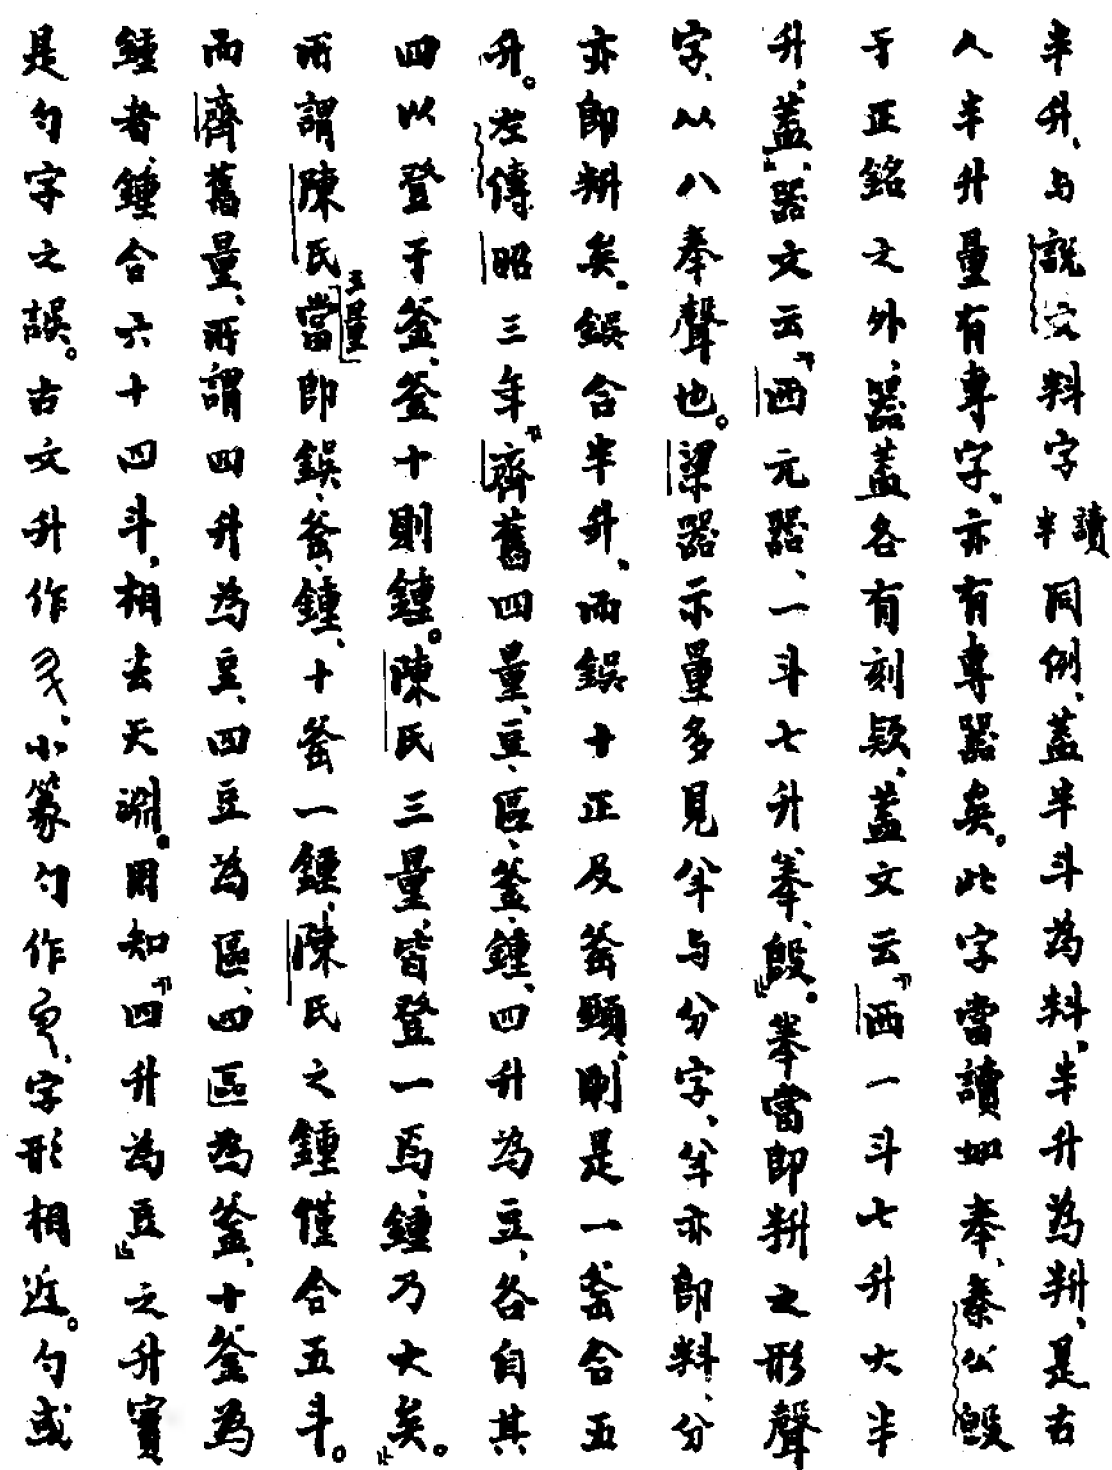 半升、与說文料字讀半同例、蓋半斗為料、半升為𣂁、是古
人半升量有專字、亦有專器矣。此字當讀如奉、秦公𣪘
于正銘之外、器蓋各有刻款、蓋文云「西一斗七升大半
升、蓋」、器文云「西元器、一斗七升奉、𣪘」。奉當即𣂁之形聲
字、从八奉聲也。梁器示量多見𠦒与分字、𠦒亦即料、分
亦即𣂁矣。鋘合半升、而鋘十正及釜頸、則是一釜合五
升。左傳昭三年「齊舊四量、豆、區、釜、鍾、四升為豆、各自其
四以登于釜、釜十則鍾。陳氏三量、皆登一焉、鍾乃大矣」。
所謂陳氏三量當即鋘、釜、鍾、十釜一鍾、陳氏之鍾僅合五斗。
而齊舊量、所謂四升為豆、四豆為區、四區為釜、十釜為
鍾者、鍾合六十四斗、相去天淵。因知「四升為豆」之升實
是勺字之誤。古文升作、小篆勺作、字形相近。勺或